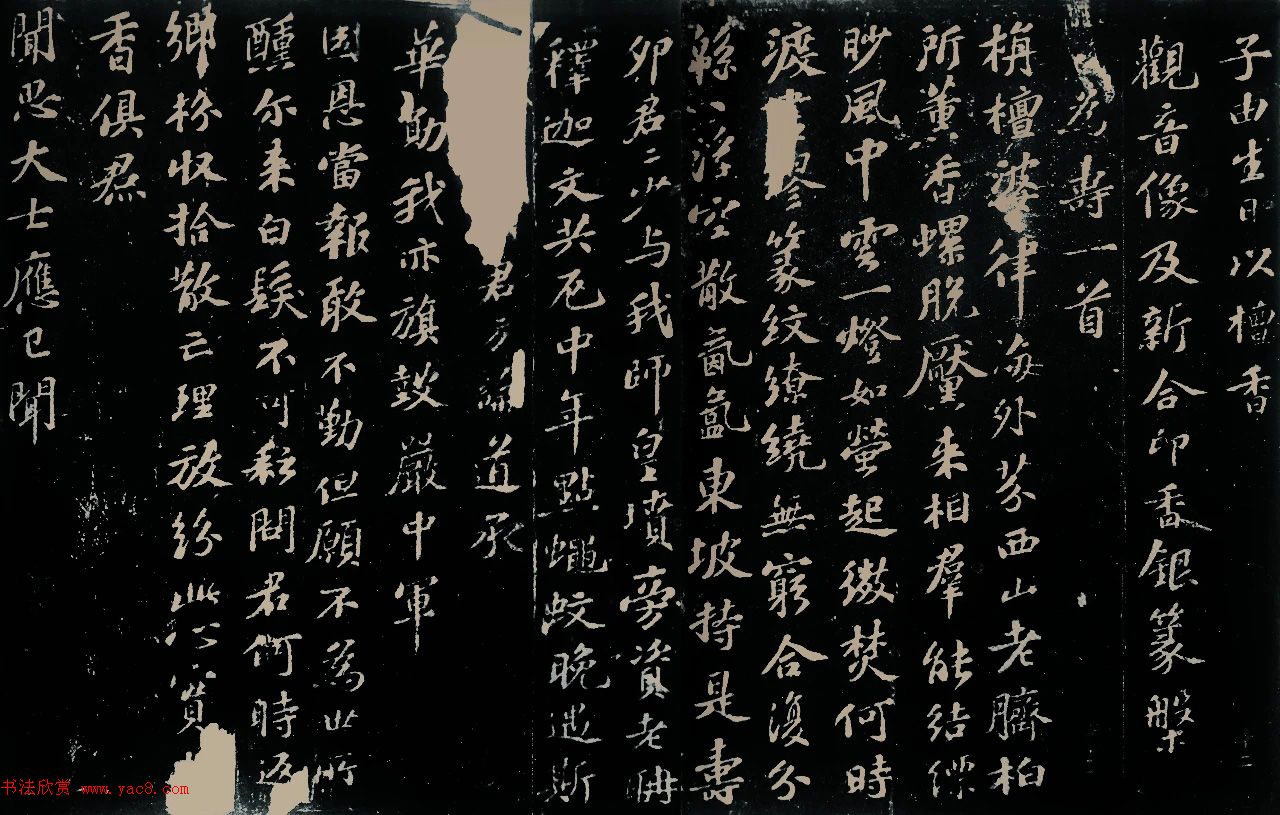 子由生日以檀香
觀音像及新合印香銀篆槃
為壽一首
栴檀婆律海外芬西山老臍柏
所薰香螺脫黶来相羣能結縹
眇風中雲一燈如螢起微焚何時
渡繆篆紋繚繞無窮合復分
緜〻浮空散氤氳東坡持是壽
卯君〻少与我師皇墳旁資老聃
釋迦文共厄中年點蠅蚊晚遇斯
君方論道承
華勛我亦旗鼓嚴中軍
國恩當報敢不勤但願不為世所
醺尔来白髮不可耘問君何時返
鄉枌收拾散亡理放紛此心實
香俱焄
聞思大士應已聞
书法欣赏 www.yac8.com